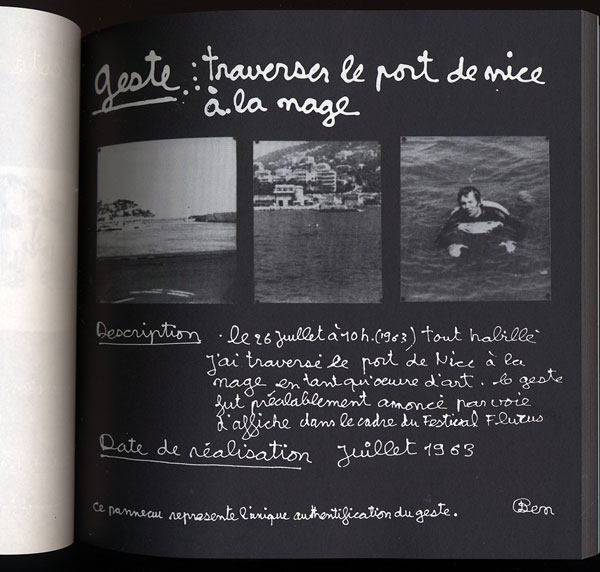 geste : traverser le port de nice
à la nage
Description . le 26 juillet à 10h. (1963) tout habillé
j'ai traversé le port de Nice à la
nage en tant qu'oeuvre d'art. le geste
fut préalablement annoncé par voie
d'affiche dans le cadre du Festival Fluxus
Date de réalisation juillet 1963
ce panneau represente l'unique authentification du geste. Ben